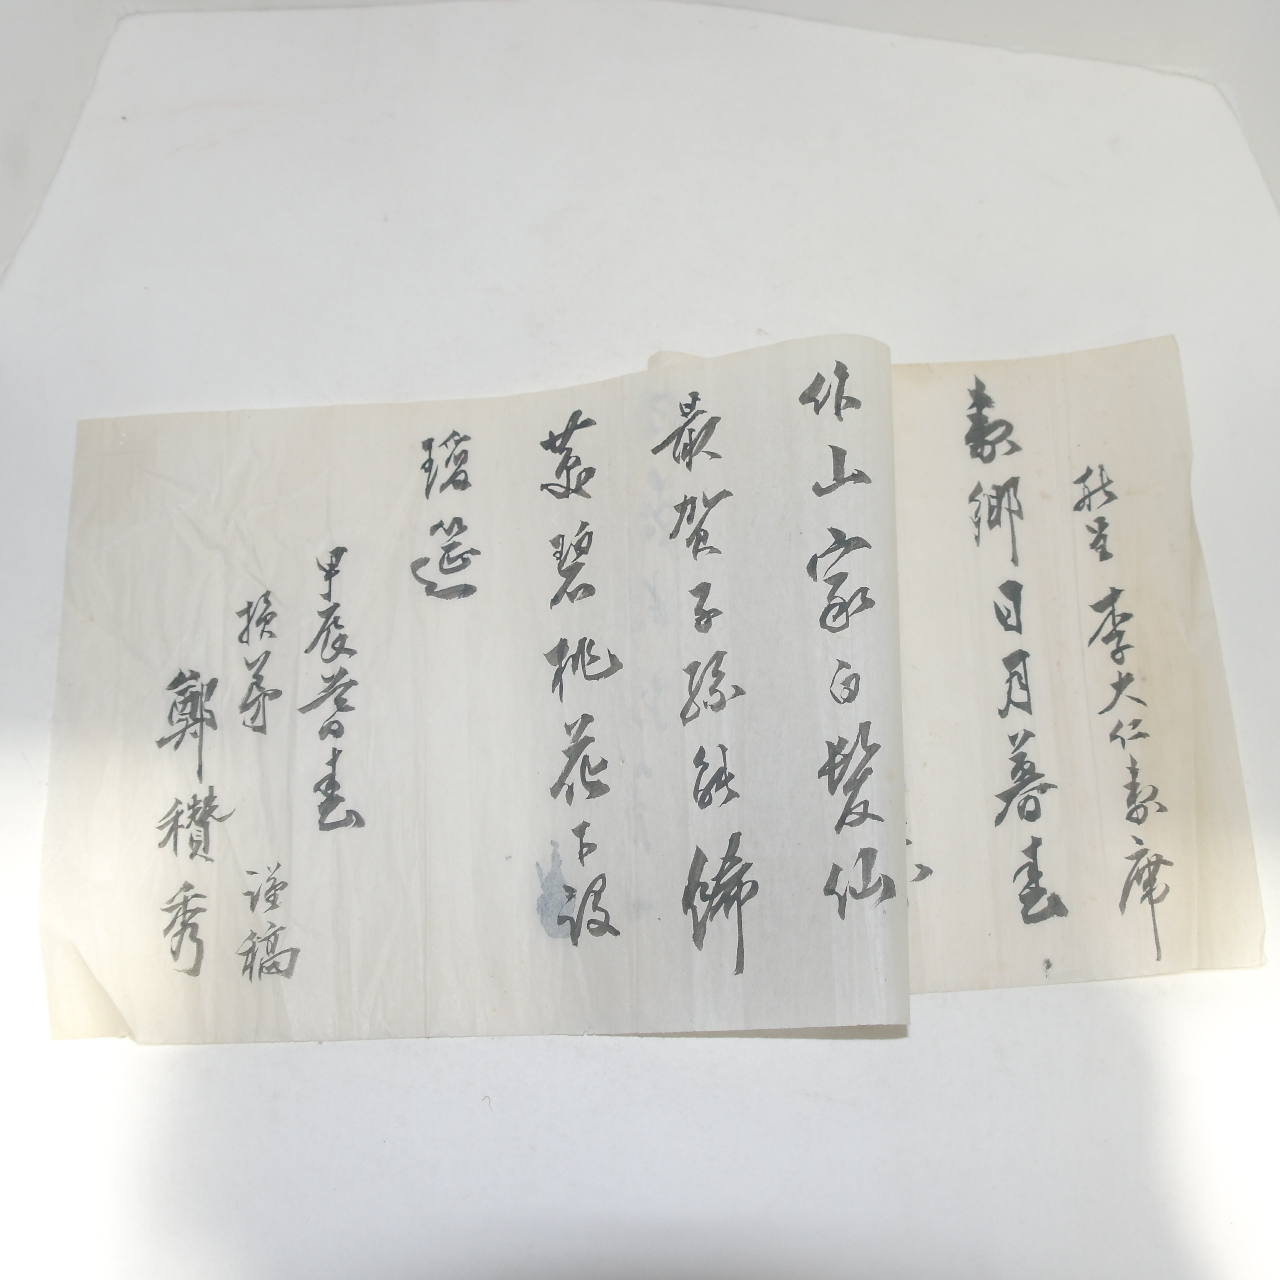 李大仁壽席
壽鄉日月暮春
作山家白髮仙
最賀子孫能
碧桃花下設
瓊筵
甲辰暮春
損弟 謹稿
鄭穳秀